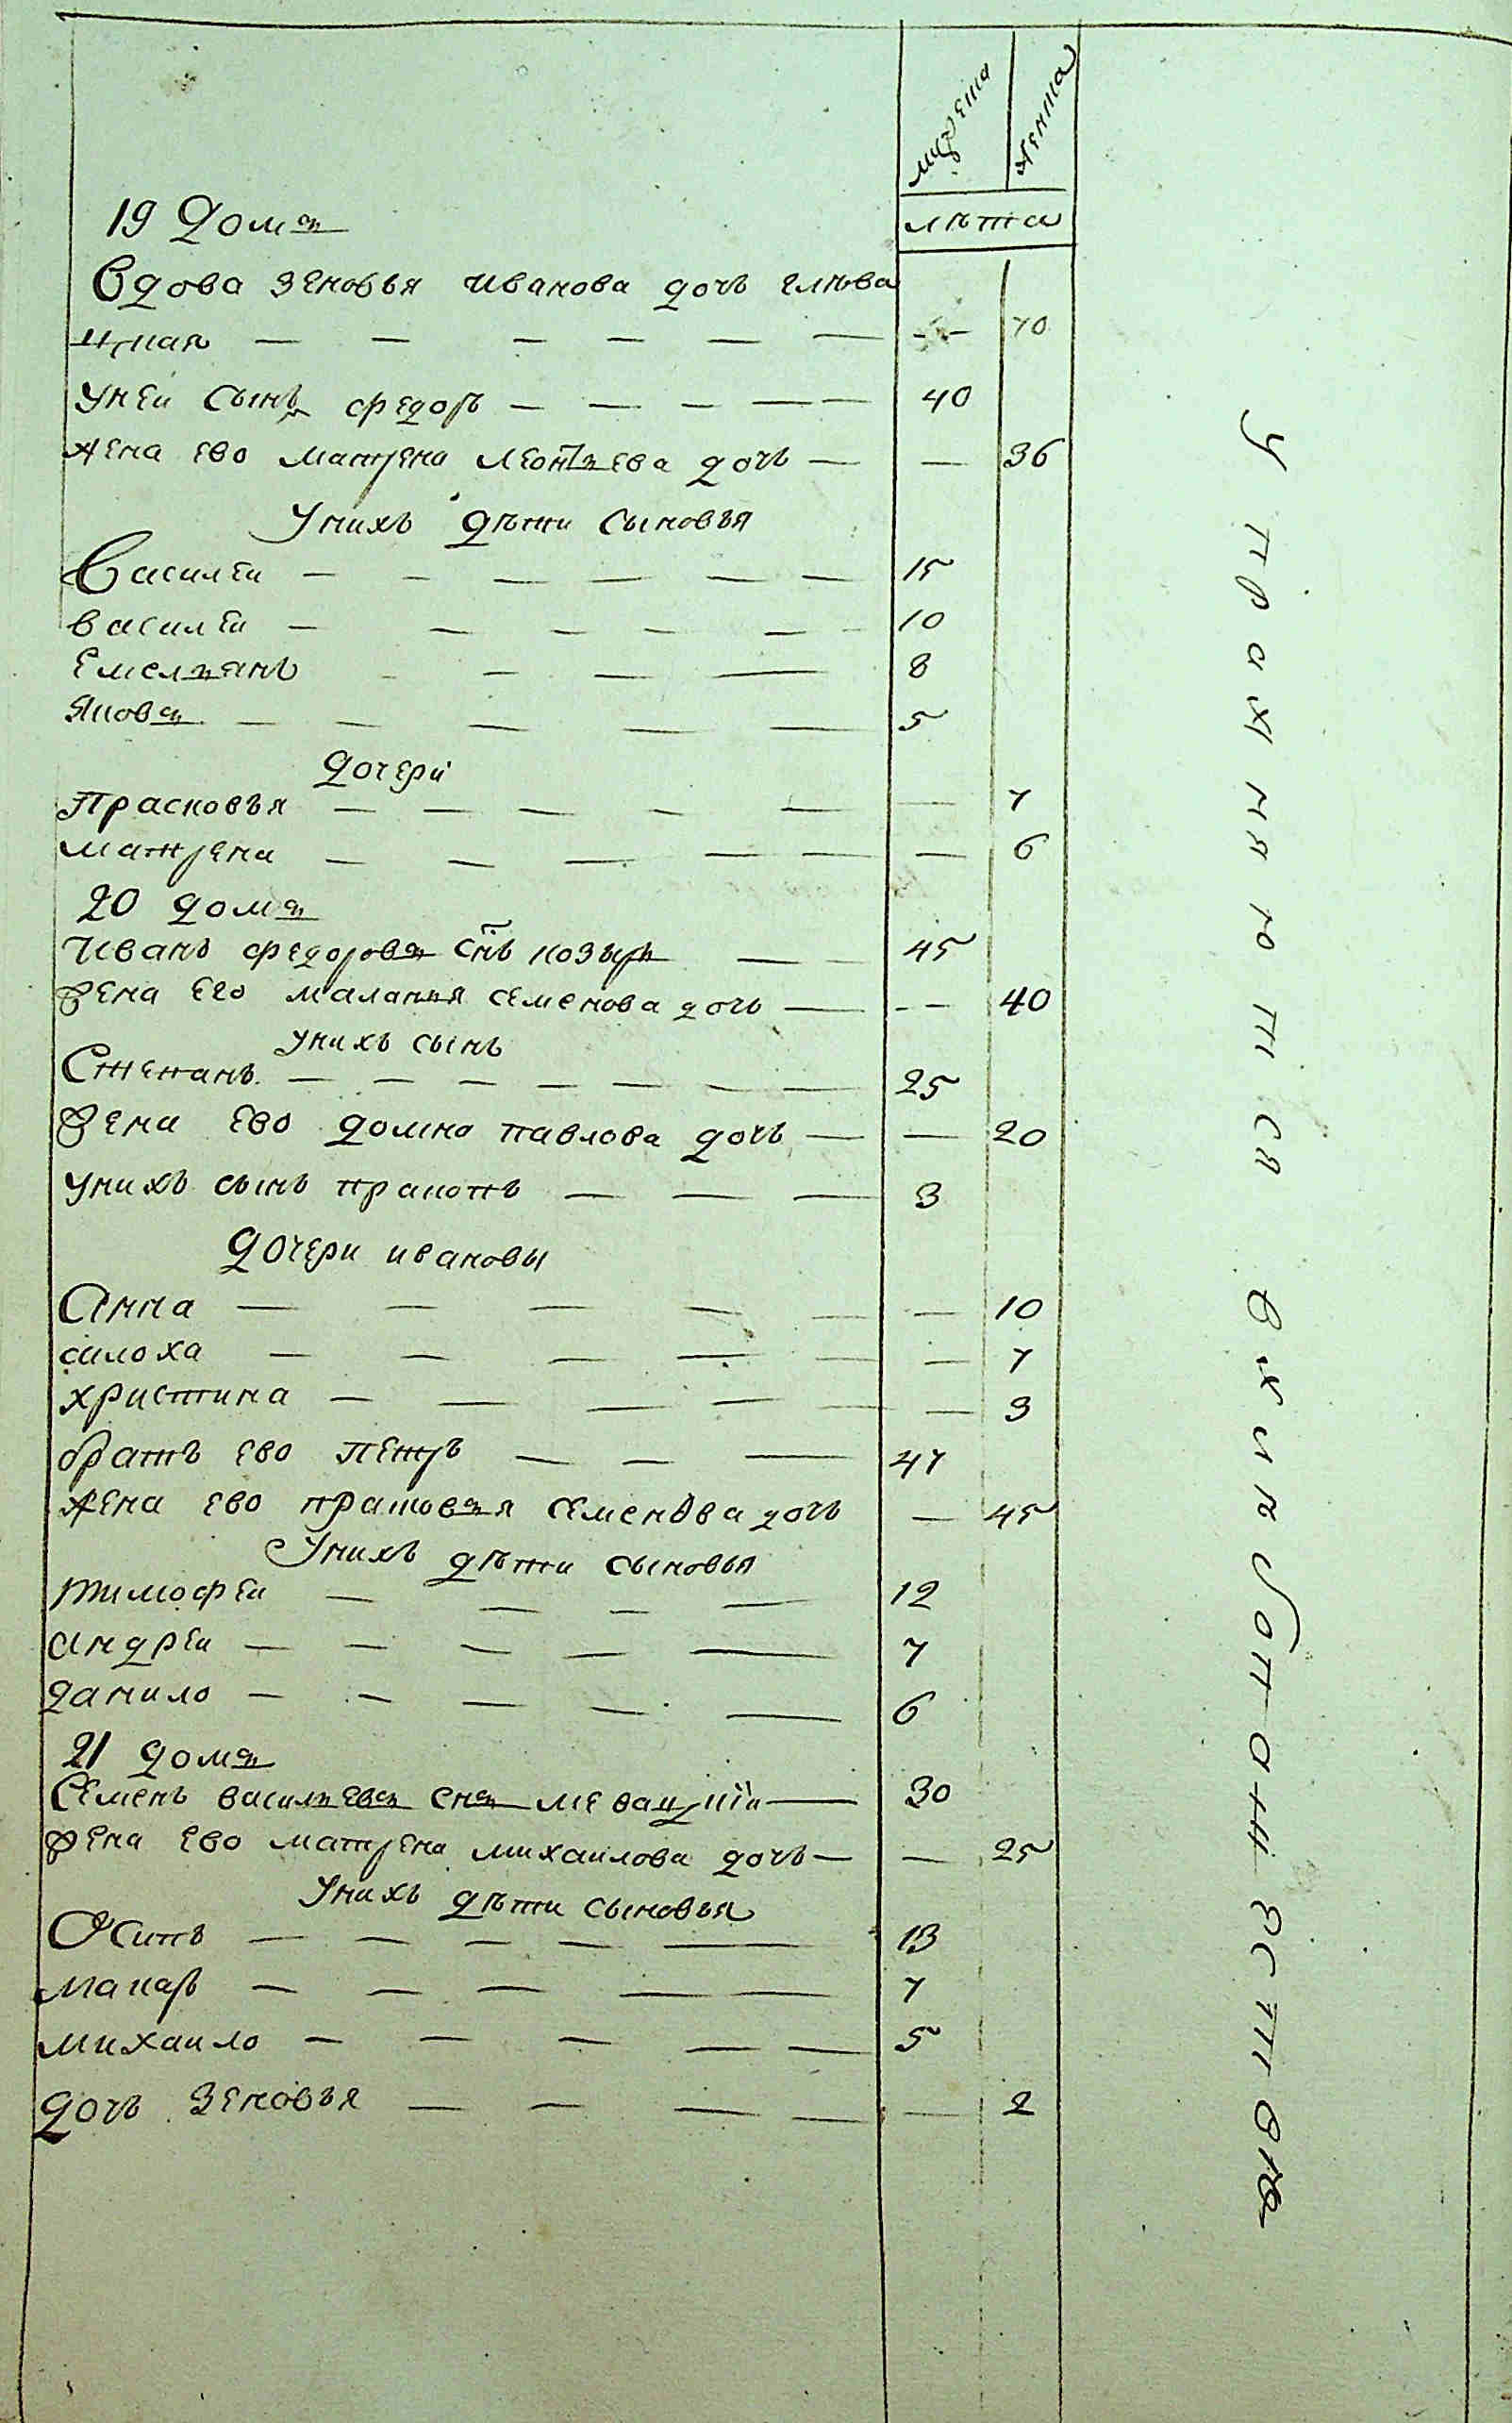 мужеска
женска
лѣта
19 Домъ
Вдова Зеновья иванова дочь
70
У неи сынъ федоръ 40
жена ево матрена леонтьева дочь 36
У нихъ дѣти сыновья
Василеи 15
василеи 10
Емельянъ 8
Яковъ 5
дочери
Прасковья 7
матрена 6
20 домъ
Иванъ федоровъ снъ козырь 45
жена его маланья семенова дочь 40
У нихъ сынъ
Степанъ 25
жена ево домна павлова дочь 20
У нихъ сынъ пракопъ 3
дочери ивановы
Анна 10
христина 3
братъ ево петръ 47
жена ево прасковья семенова дочь 45
У нихъ дѣти сыновья
тимофеи 12
андреи 7
данило 6
21 домъ
Семенъ васильевъ снъ 30
жена ево матрена михаилова дочь 25
У нихъ дѣти сыновья
Осипъ 13
макаръ 7
михаило 5
дочь Зеновья 2
упражняютса в хлебопашестве